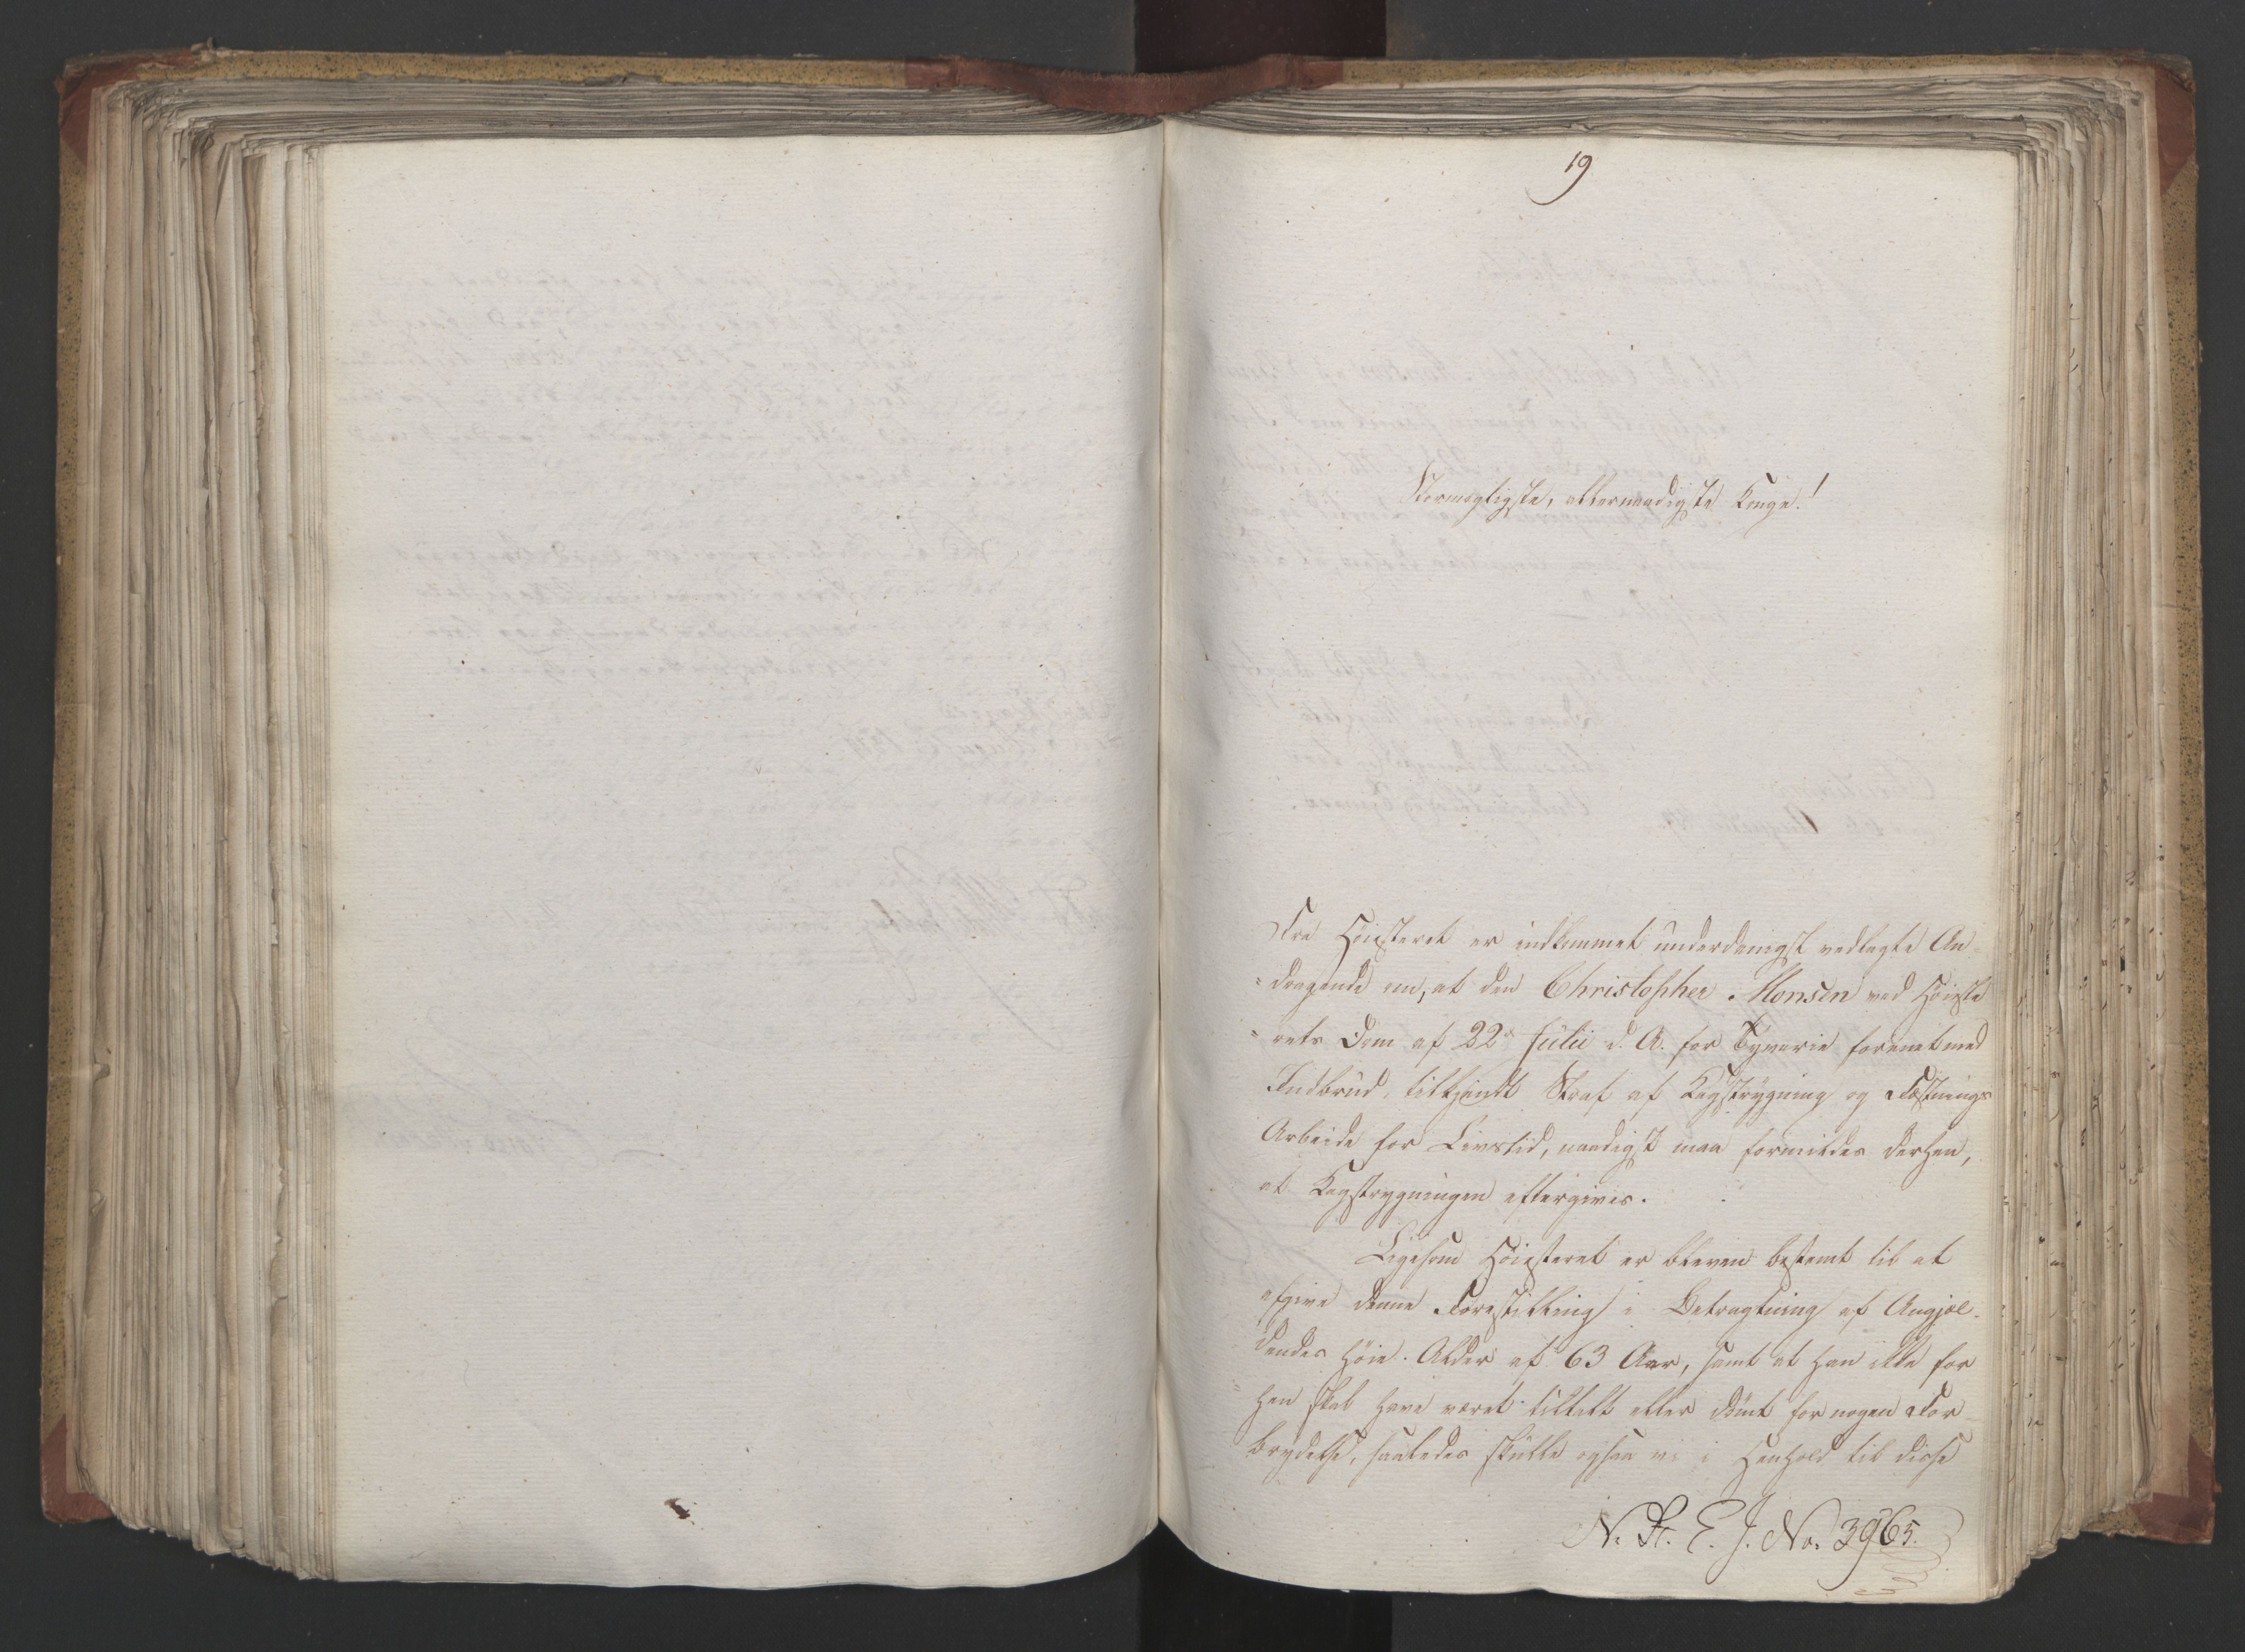 19
Stormægtigste, allernaadigste Konge!
Fra Høiesteret er indkommet underdanigst vedlagte An-
dragende om, at den Christopher Monsen ved Høieste
rets Dom af 22d Julii d. A. for Tyverie forenet med
Indbrud, tilkjendt Straf af Kagstrygning og Fæstnings
Arbeide for Livstid, naadigst maa formildes derhen,
at Kagstrygningen eftergives.
Ligesom Høiesteret er bleven bestemt til at
afgive denne Forestilling i Betragtning af Angjæl-
dendes høie Alder af 63 Aar, samt at han ikke for
hen skal have været tiltalt eller dømt for nogen For
brydelse, saaledes skulle ogsaa vi i Henhold til disse
N. Fr. E. J. No. 3965.